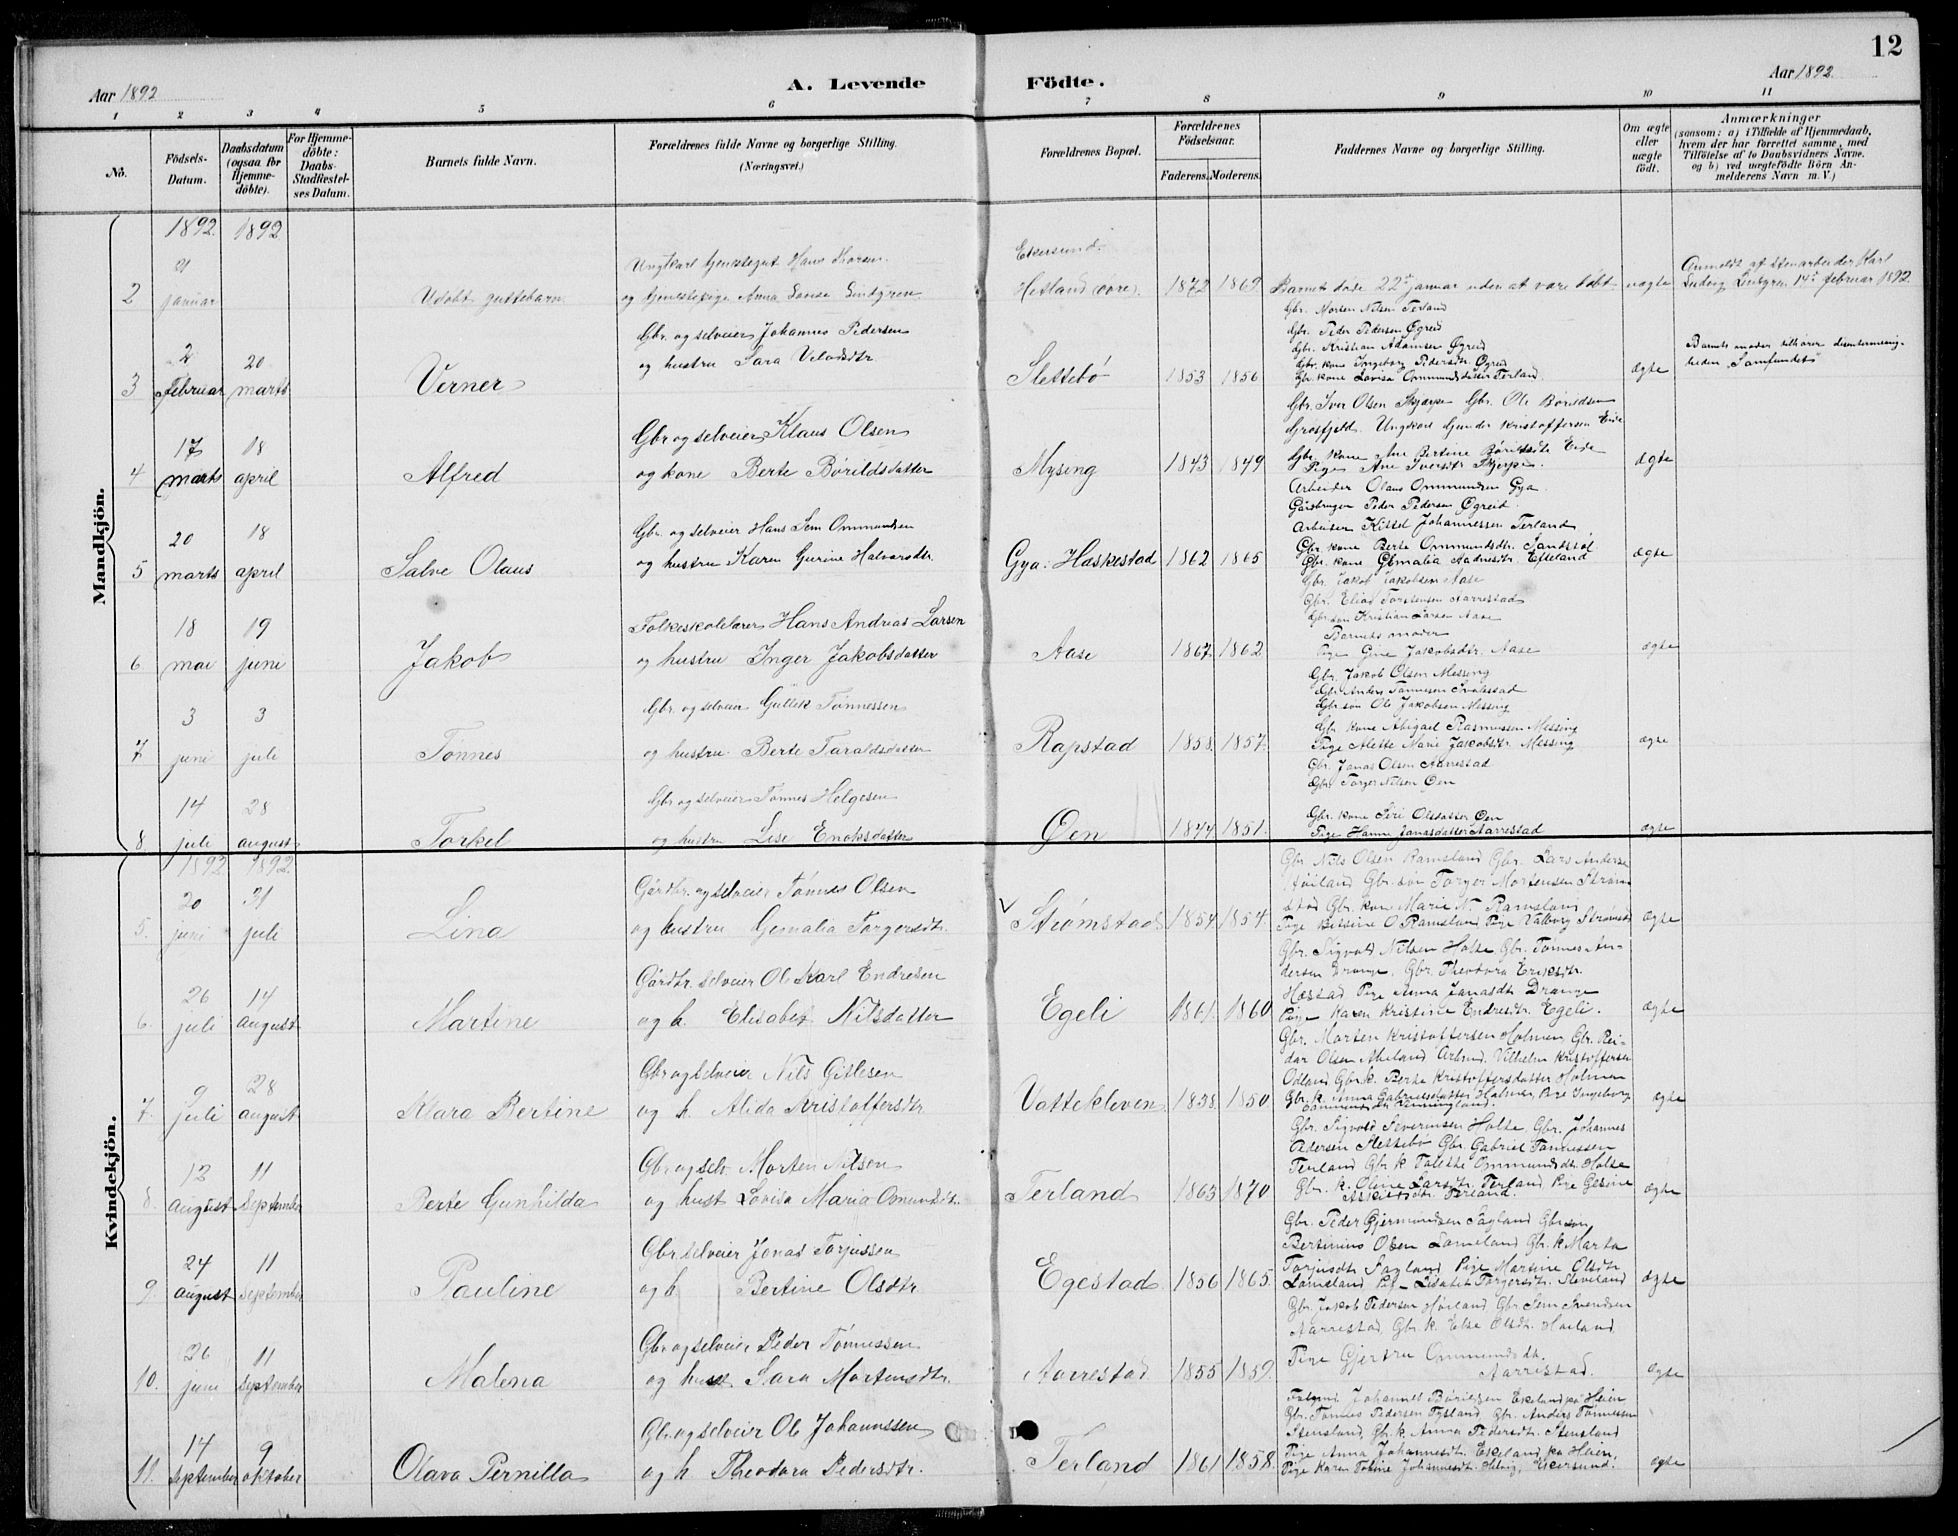 12
Aar 1892
A. Levende Födte.
Aar 1892
1 2 3 4 5 6 7 8 9 10 11
No.
Födsels-Datum.
Daabsdatum (ogsaa for Hjemme-döbte).
For Hjemme-döbte: Daabs-Stadfæstel-ses Datum.
Barnets fulde Navn.
Forældrenes fulde Navne og borgerlige Stilling.
(Næringsvei.)
Forældrenes Bopæl.
Forældrenes Födselsaar.
Faderens. Moderens.
Faddernes Navne og borgerlige Stilling.
Om ægte eller uægte födt.
Anmærkninger
(saasom: a) i Tilfælde af Hjemmedaab, hvem der har forrettet samme, med Tilföielse af to Daabsvidners Navne, og b) ved uægtefödte Börn An-melderens Navn m. V.)
Mandkjön.
1892 1892
2 21 januar Udøbt guttebarn
Ungkarl tjenestegut Hans Larsen
og tjenestepige Anna Lovise Lindgren
Ekersund.
Hetland 1872 1869
Barnet døde 22de januar uden at være døbt
uægte
Anmeldt af stenarbeider Karl
Ludvig Lindgren 14de februar 1892.
3 2 februar 20 marts Verner
Gbr. og selveier Johannes Pedersen
og hustru Sara
Slettebö 1853 1856
Gbr. Morten Nilsen Terland
Gbr. Peder Pedersen Øgreid
Gbr. Kristian Adamsen Øgreid
Gbr. kone Ingeborg Pedersdtr. Øgreid
Gbr. kone Lovisa Ommundsdatter Terland.
ægte
Barnets moder tilhører dissentermenig-
heden "Samfundet"
4 17 marts 18 april Alfred
Gbr og selveier Klaus Olsen
og kone Berte Børildsdatter
Mysing 1843 1849
Gbr. Iver Olsen Skjærpe Gbr. Ole Børildsen
Grøsfjeld. Ungkarl Gunder Kristoffersen Eide
Gbr. kone Ane Bertine Børildsdtr Eide
Pige Ane Iversdtr Skjerpe.
ægte
5 20 marts 18 april Salve Olaus
Gbr. og selveier Hans Sem Ommundsen
og hustru Karen Gurine Halvorsdtr.
Gya. Heskestad 1862 1865
Arbeider Olaus Ommundsen Gya.
Gårdbruger Peder Pedersen Øgreid
Arbeider Kittel Johannessen Terland
Gbr. kone Berte Ommundsdtr. Sandstøl
Gbr. kone Gemalia Aadnesdtr. Efteland
ægte
6 18 mai 19 juni Jakob
Folkeskolelærer Hans Andrias Larsen
og hustru Inger Jakobsdatter
Aase 1867 1862
Gbr. Jakob Jakobsen Aase
Gbr. Elias Torstensen Aarrestad
Gbr. søn Kristian Larsen Aase
Barnets moder
Pige Gine Jakobsdtr. Aase
ægte
7 3 juni 3 juli Tønnes
Gbr. og selveier Gullik Tønnessen
og hustru Berte Taraldsdatter
Rapstad 1858 1857
Gbr. Jakob Olsen Messing
Gbr. Anders Tønnesen
Gbr. søn Ole Jakobsen Messing
Gbr. kone Abigael Rasmussen Messing
Pige Alette Marie Jakobsdtr. Messing
ægte
8 14 juli 28 august Torkel
Gbr og selveier Tønnes Helgesen
og hustru Lise Enoksdatter
Øen 1844 1851
Gbr. Jonas Olsen Aarrestad
Gbr Torger Nilsen Øen
Gbr. kone Siri Olsdatter Øen
Pige Hanne Jonasdatter Aarrestad
ægte
Kvindekjön.
1892 1892
5. 20 juni 31 juli Lina
Gårdbr. og selveier Tønnes Olsen
og hustru Gemalia Torgersdtr.
Strømstad 1854 1854
Gbr. Nils Olsen Ramsland Gbr. Lars Anderse
Høiland Gbr. søn Torger Mortensen Strøm
stad Gbr. kone Marie N. Ramsland
Pige Betsine O Ramsland Pige Valborg Strømstd
ægte
6. 26 juli 14 august Martine
Gårdbr. selveier Ole Karl Endresen
og h. Elisabet Nilsdatter
Egeli 1861 1860
Gbr. Sigvald Nilsen Holte Gbr. Tønnes An-
dersen Drange, Gbr. Theodora Eriksdtr.
Hæstad Pige Anna Jonasdtr Drange
Pige Karen Kristine Endresdtr. Egeli.
ægte
7. 9 juli 28 august Klara Bertine
Gbr og selveier Nils Gitlesen
og h. Alida Kristoffersdtr.
Vattekleven 1858 1850
Gbr. Morten Kristoffersen Holmen Gbr. Rei-
dar Olsen Arbmd. Vilhelm Kristoffersen
Odland Gbr. k. Berte Kristoffersdatter Holmen
Gbr. k. Anna Gabrielsdatter Holmen, Pige Ingeborg
ægte
8. 12 august 11 september Berte Gunhilda
Gbr og selv Morten Nilsen
og hust Lovisa Maria Omundsdtr.
Terland 1863 1870
Gbr. Sigvald Severinsen Holte Gbr. Johannes
Pedersen Slettebø Gbr. Gabriel Tønnessen
Terland Gbr k Talette Ommundsdtr. Holte
Gbr. k. Oline Larsdtr. Terland, Pige Gesine
Terland.
ægte
9. 24 august 11 september Pauline
Gbr selveier Jonas Torjussen
og h Bertine Olsdtr.
Egestad 1856 1865
Gbr. Peder Gjermundsen Sagland Gbr søn
Bertinius Olsen Lomeland Gbr. k Marta
Torjusdtr Sagland Pige Martine Olsdtr
Lomeland Pige Lisabet Torgersdtr. Sleveland
ægte
10. 26 juni 11 september Malena
Gbr og selveier Peder Tønnessen
og hust Sara Mortensdtr.
Aarrestad 1855 1859
Gbr. Jakob Pedersen Høiland Gbr Sem Svendsen
Aarrestad, Gbr. k. Else Olsdtr. Høiland
Pige Gjertru Ommundsdtr.
Aarrestad.
ægte
11. 14 september 9 oktober Olava Pernilla
Gbr. og selveier Ole Johannssen
og h Theodora Pedersdtr.
Terland 1861 1858
Johannes Børildsen Eikeland på Heien
Gbr. Tønnes Pedersen Tysland, Gbr. Anders Tønnessen
Stensland, Gbr. k Anna Pedersdtr. Stensland
Pige Anna Johannesdtr. Eikeland på Heien,
Pige Karen Tobine Johannesdtr. Ekersund.
ægte